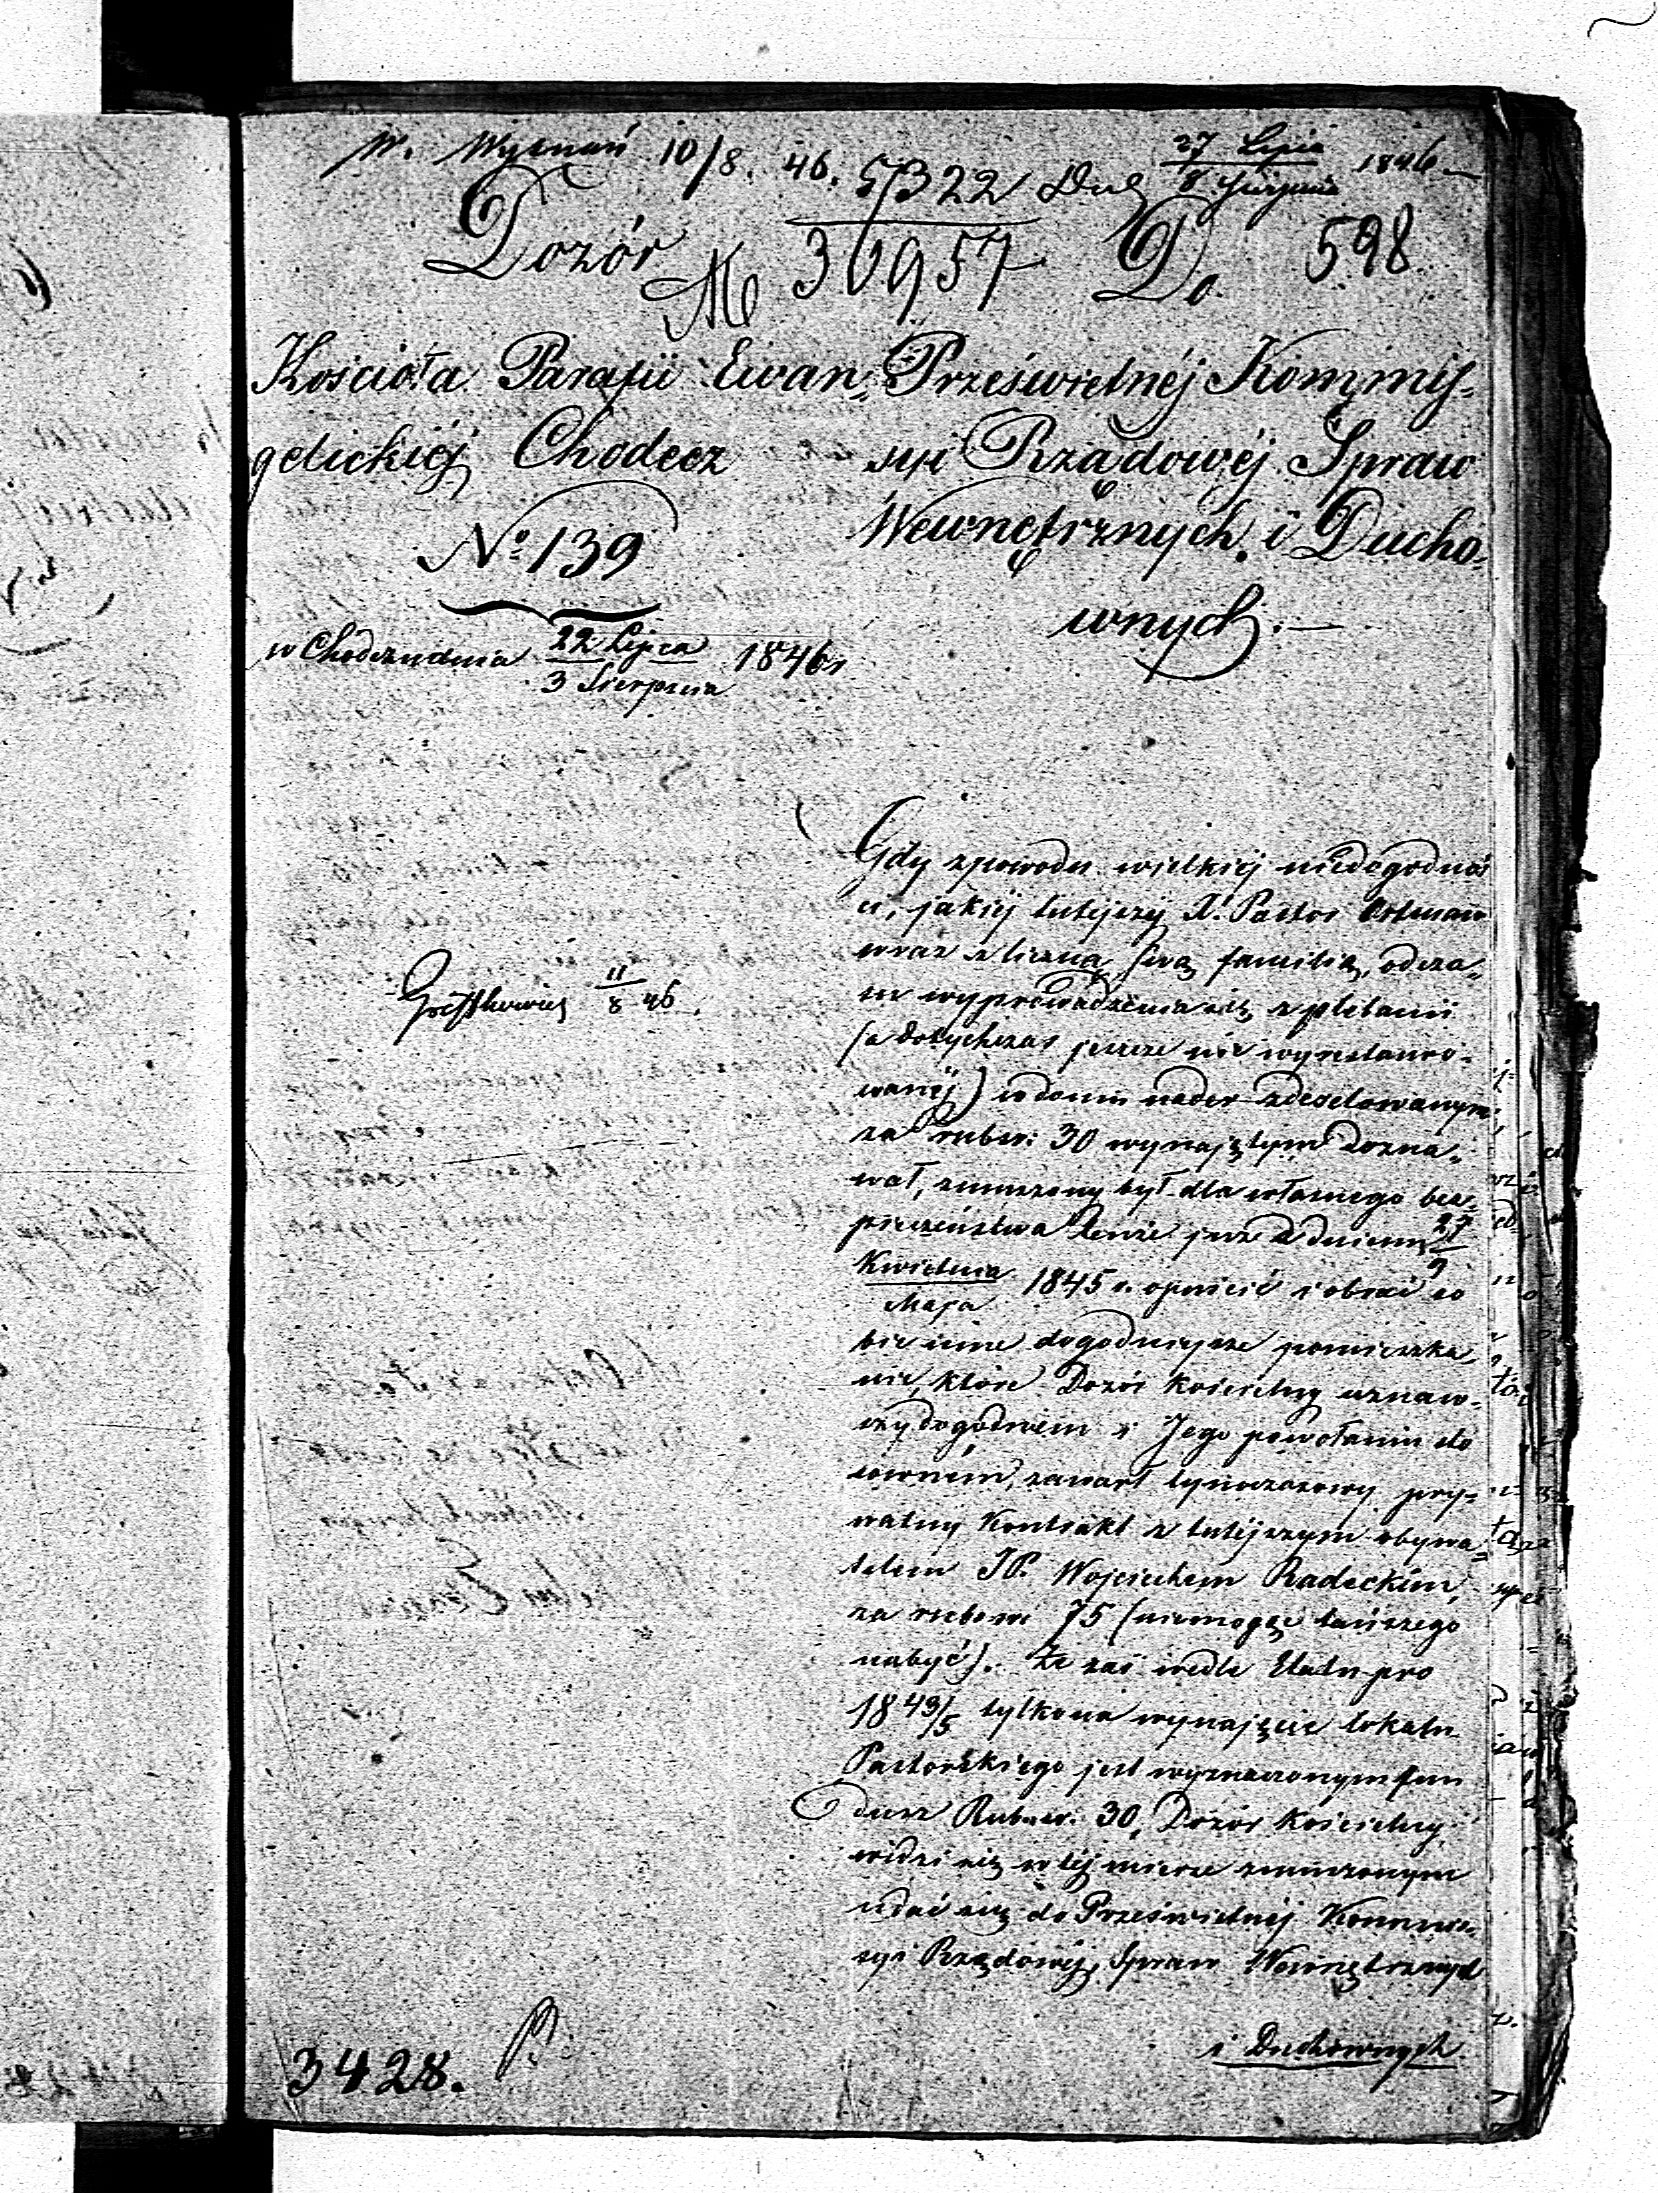 W. Wyznań 10/8. 46. 5322 Duch 27 Lipca / 8 Sierpnia 1846
Dozór
№ 30957
Do 598
Kościoła Parafii Ewan-
gelickiéj Chodecz
No 139
w Chodczu dnia 22 Lipca / 3 Sierpnia 1846 r
Prześwietnéj Kommis-
syi Rządowéj Spraw
Wewnętrznych i Ducho-
wnych.
Gdy z powodu wielkiéj niedogodnoś
ci, jakiéj tutejszy X. Pastor Ortmann
wraz z liczną swą familią, od cza-
su wyprowadzenia się z plebanii
(a dotychczas jeszcze nie wyrestauro-
wanéj) w domu nader zdezelowanym
za rubsr: 30 wynajętym dozna-
wał, zmuszony był dla własnego bez-
pieczeństwa tenże już z dniem 27/9
Kwietnia / Maja 1845 r. opuścić i obrać so
bie inne dogodniejsze pomieszka-
nie, które Dozór Kościelny uznaw-
szy dogodnem i Jego powołaniu sto
sowném, zawarł tymczasowy pry-
watny Kontrakt z tutejszym obywa-
telem JP. Wojciechem Radeckim,
za rubsr 75 (niemogąc tańszego
nabyć). Że zaś wedle Etatu pro
1843/5 tylko na wynajęcie lokalu
Pastorskiego jest wyznaczonym fun
dusz Rub. sr. 30, Dozór Kościelny
widzi się w téj mierze zmuszonym
udać się do Prześwietnéj Kommis-
syi Rządowéj Spraw Wewnętrznych
i Duchownych
11/8 46.
3428.